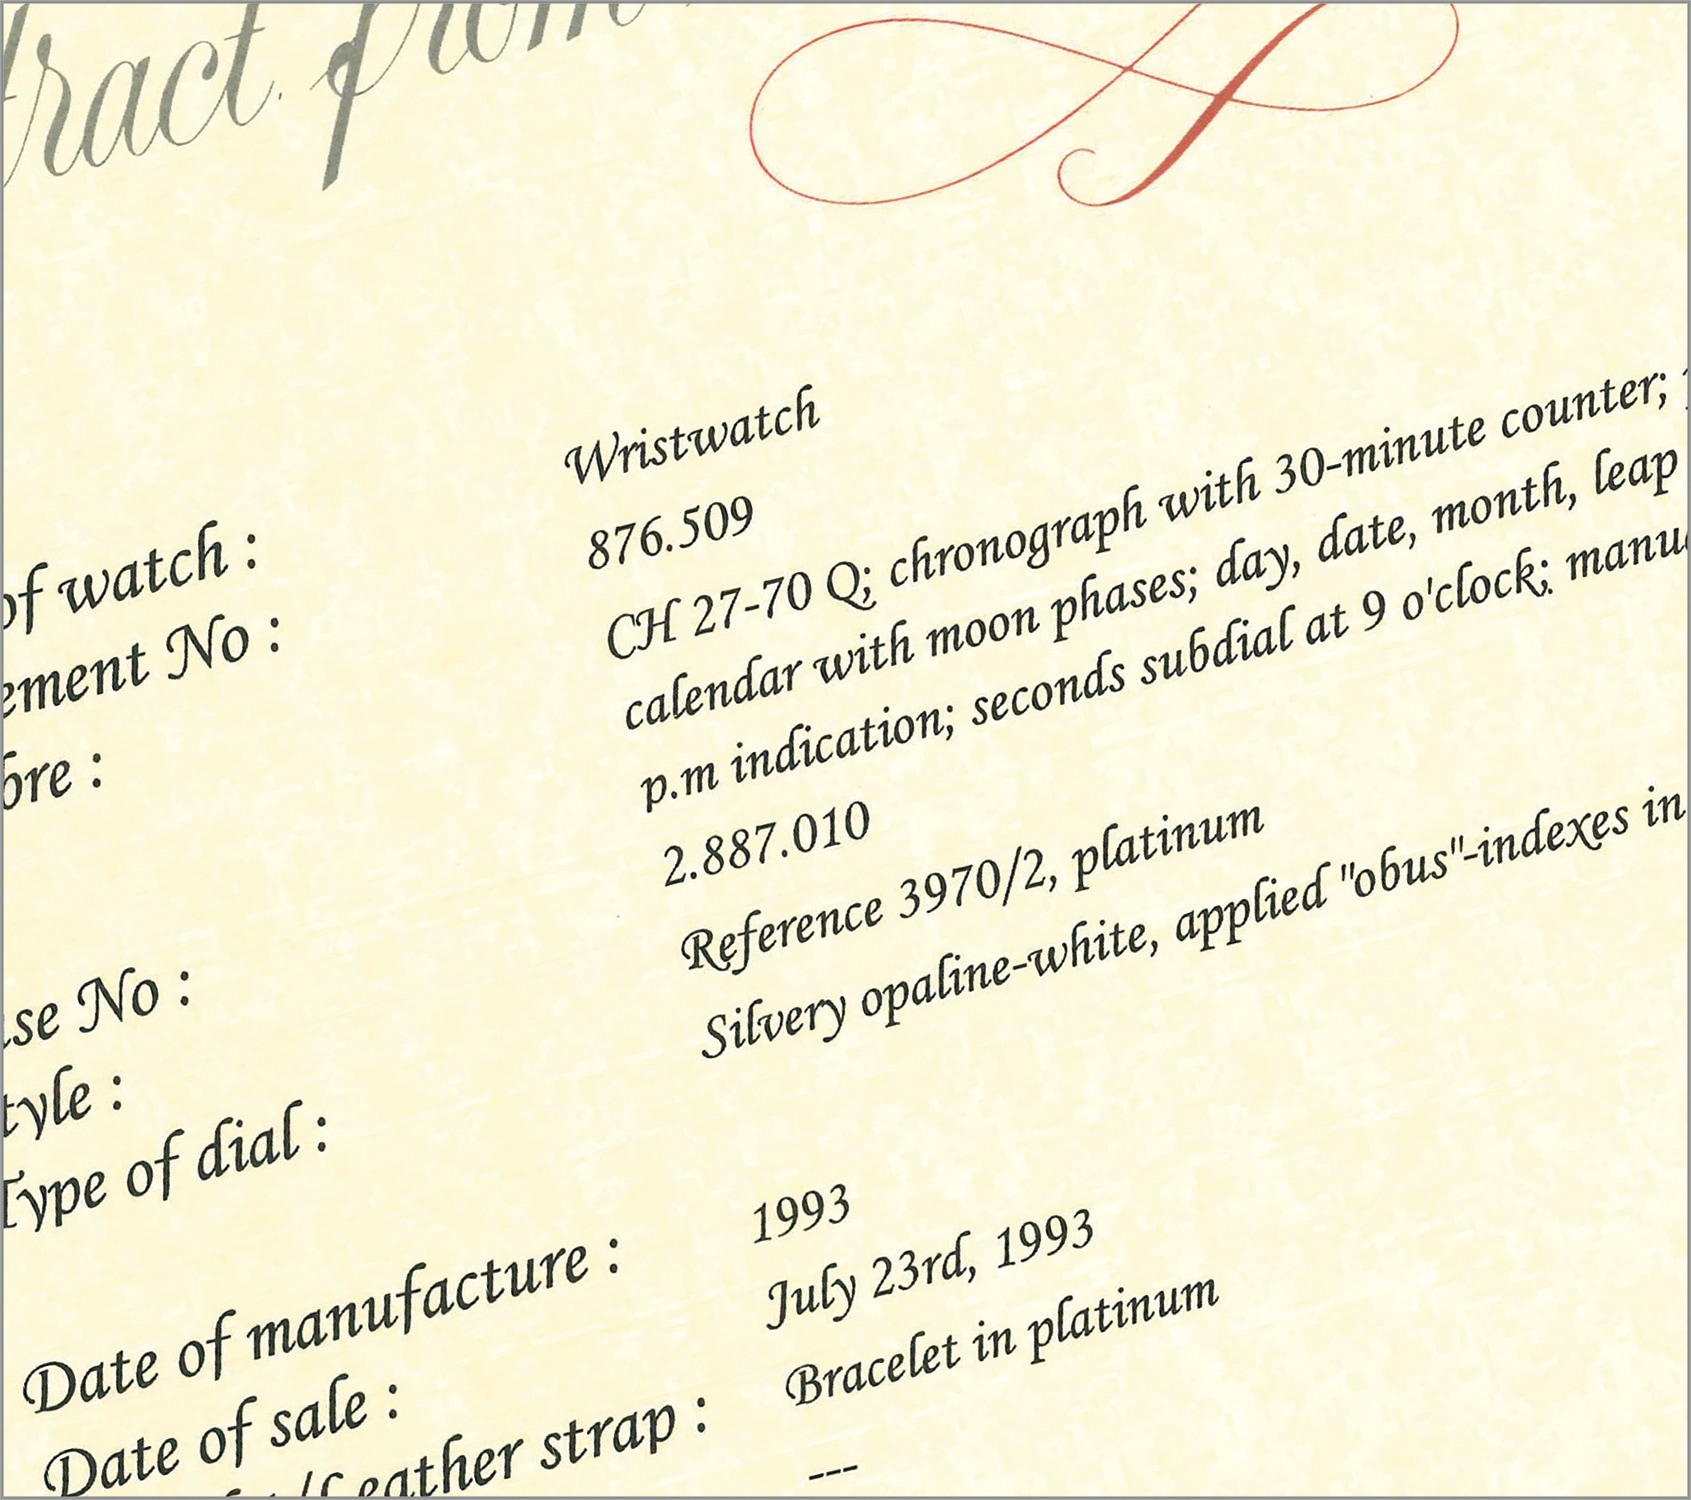 tract from
of watch : Wristwatch
ement No : 876.509
bre : CH 27-70 Q; chronograph with 30-minute counter;
calendar with moon phases; day, date, month, leap
p.m indication; seconds subdial at 9 o'clock; manu
se No : 2.887.010
tyle : Reference 3970/2, platinum
Type of dial : Silvery opaline-white, applied "obus"-indexes in
Date of manufacture : 1993
Date of sale : July 23rd, 1993
/Leather strap : Bracelet in platinum
---